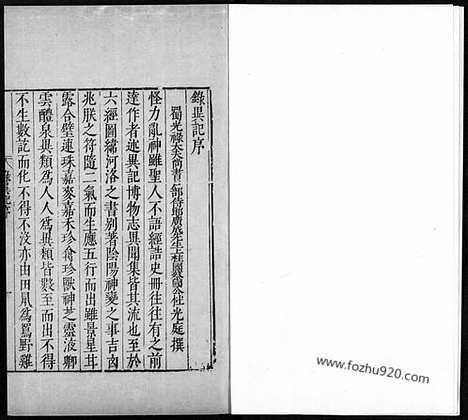 錄異記序
蜀光祿大夫尚書戶部侍郎廣成先生上柱國蔡國公杜光庭撰
怪力亂神雖聖人不語經誥史冊徃徃有之前
達作者述異記博物志異聞集皆其流也至於
六經圖緯河洛之書別著陰陽神變之事吉凶
兆朕之符隨二氣而生應五行而出雖景星甘
露合璧連珠嘉麥嘉禾珍禽珍獸神芝靈液卿
雲醴泉異類爲人人爲異類皆數至而出不得
不生數訖而化不得不沒亦由田鼠爲鴽野雞
www.fozhu920.com